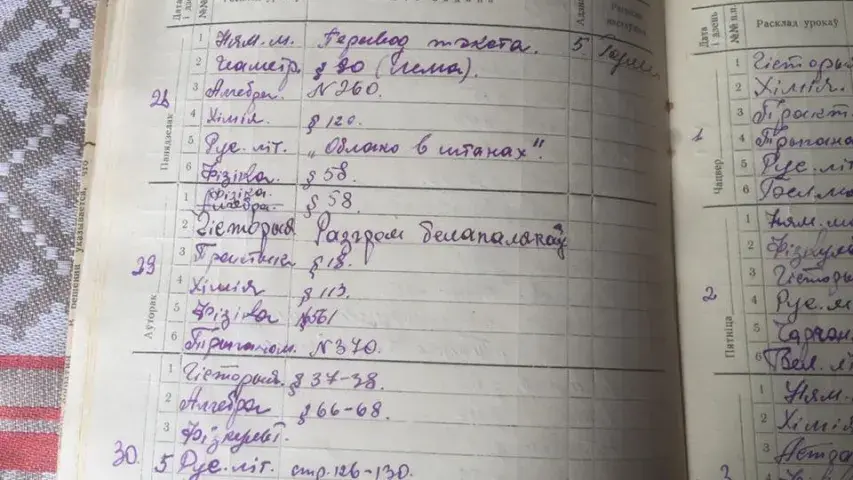 Дата і дзень
№№
Дата і дзень
№№ п.п.
Расклад урокаў
28
Панядзелак
1 Ням. м. Перевод тэкста. 5
2 Геаметр. § 90 (
3 Алгебра. N 260.
4 Хімія. § 120.
5 Рус. літ. „Облако в штанах".
6 Фізіка § 58.
29
Аўторак
1 Фізіка § 58.
2 Гісторыя Разгром белапалякаў
3 § 18.
4 Хімія § 113.
5 Фізіка
6 Трыганом. N 370.
30.
1 Гісторыя § 37-38.
2 Алгебра § 66-68.
3 Фізкульт.
5 Рус. літ. стр. 126-130.
1
Чацвер
1 Гісторыя
2 Хімія.
3 Практ.
4 Трыгано
5 Рус. літ
6
2
Пятніца
1 Ням. м
2 Фізкуль
3 Гісторы
4 Рус. м
5 Чарчэн.
6 Бел. лі
3
1 Ням.
2 Хімія
3